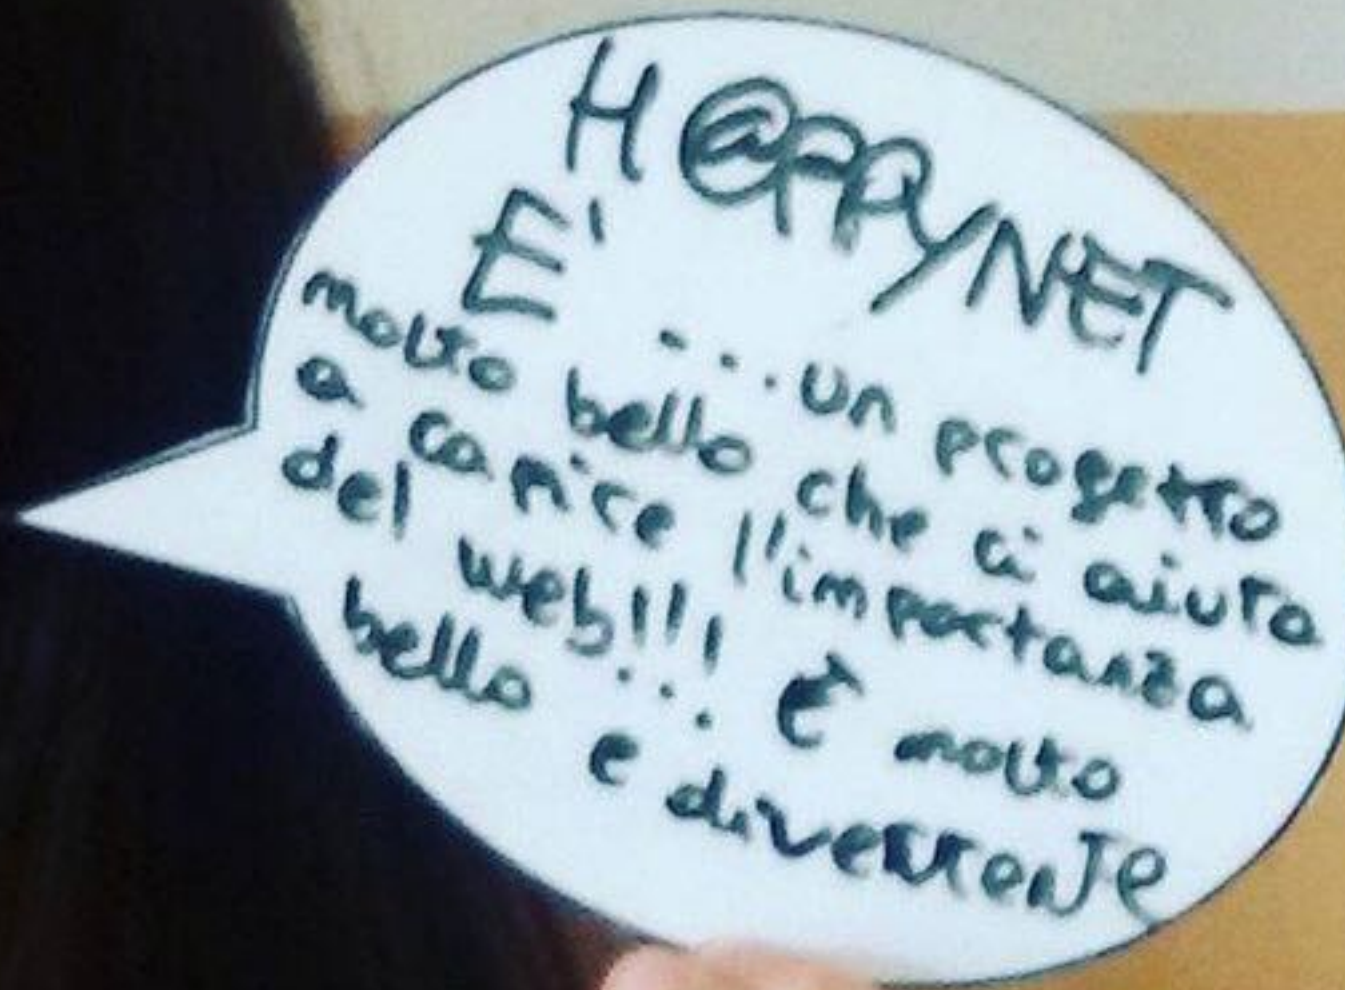 H@PPYNET
E'
...un progetto
molto bello che ci aiuta
a capire l'importanza
del web!!! È molto
bello e divertente